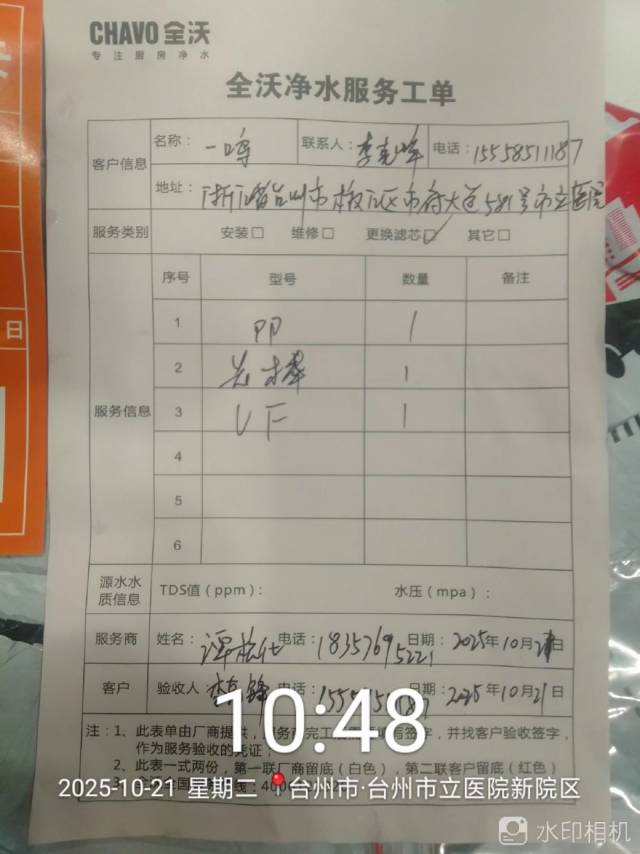 CHAVO 全沃
专注厨房净水
全沃净水服务工单
客户信息 名称: 一鸣 联系人: 李 电话: 15558511187
地址: 浙江省台州市椒江区市府大道581号市立医院
服务类别 安装□ 维修□ 更换滤芯☑ 其它□
服务信息 序号 型号 数量 备注
1 PP 1
2 炭棒 1
3 UF 1
4
5
6
源水水质信息 TDS值(ppm): 水压(mpa):
服务商 姓名: 电话: 18357695221 日期: 2025年10月21日
客户 验收人 电话: 日期: 2025年10月21日
注:1、此表单由厂商提供,服务商完工 签字,并找客户验收签字,
作为服务验收的凭证;
2、此表一式两份,第一联厂商留底(白色),第二联客户留底(红色)
10:48
2025-10-21 星期二 台州市·台州市立医院新院区
水印相机
日